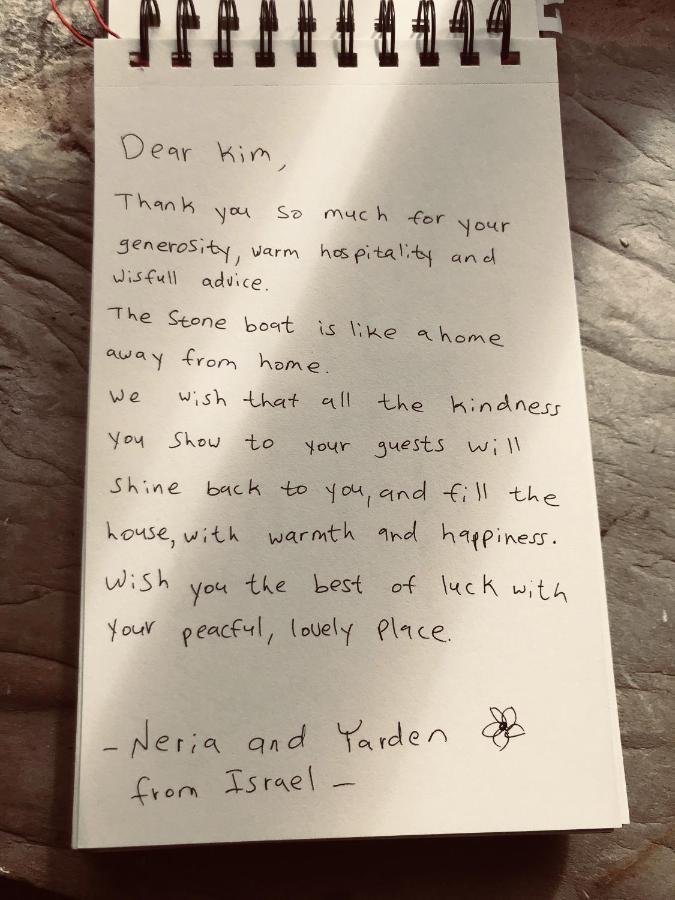 Dear Kim,
Thank you so much for your
generosity, warm hospitality and
wisfull advice.
The Stone boat is like a home
away from home.
We wish that all the kindness
you show to your guests will
shine back to you, and fill the
house, with warmth and happiness.
Wish you the best of luck with
your peacful, lovely place.
- Neria and Yarden
from Israel -